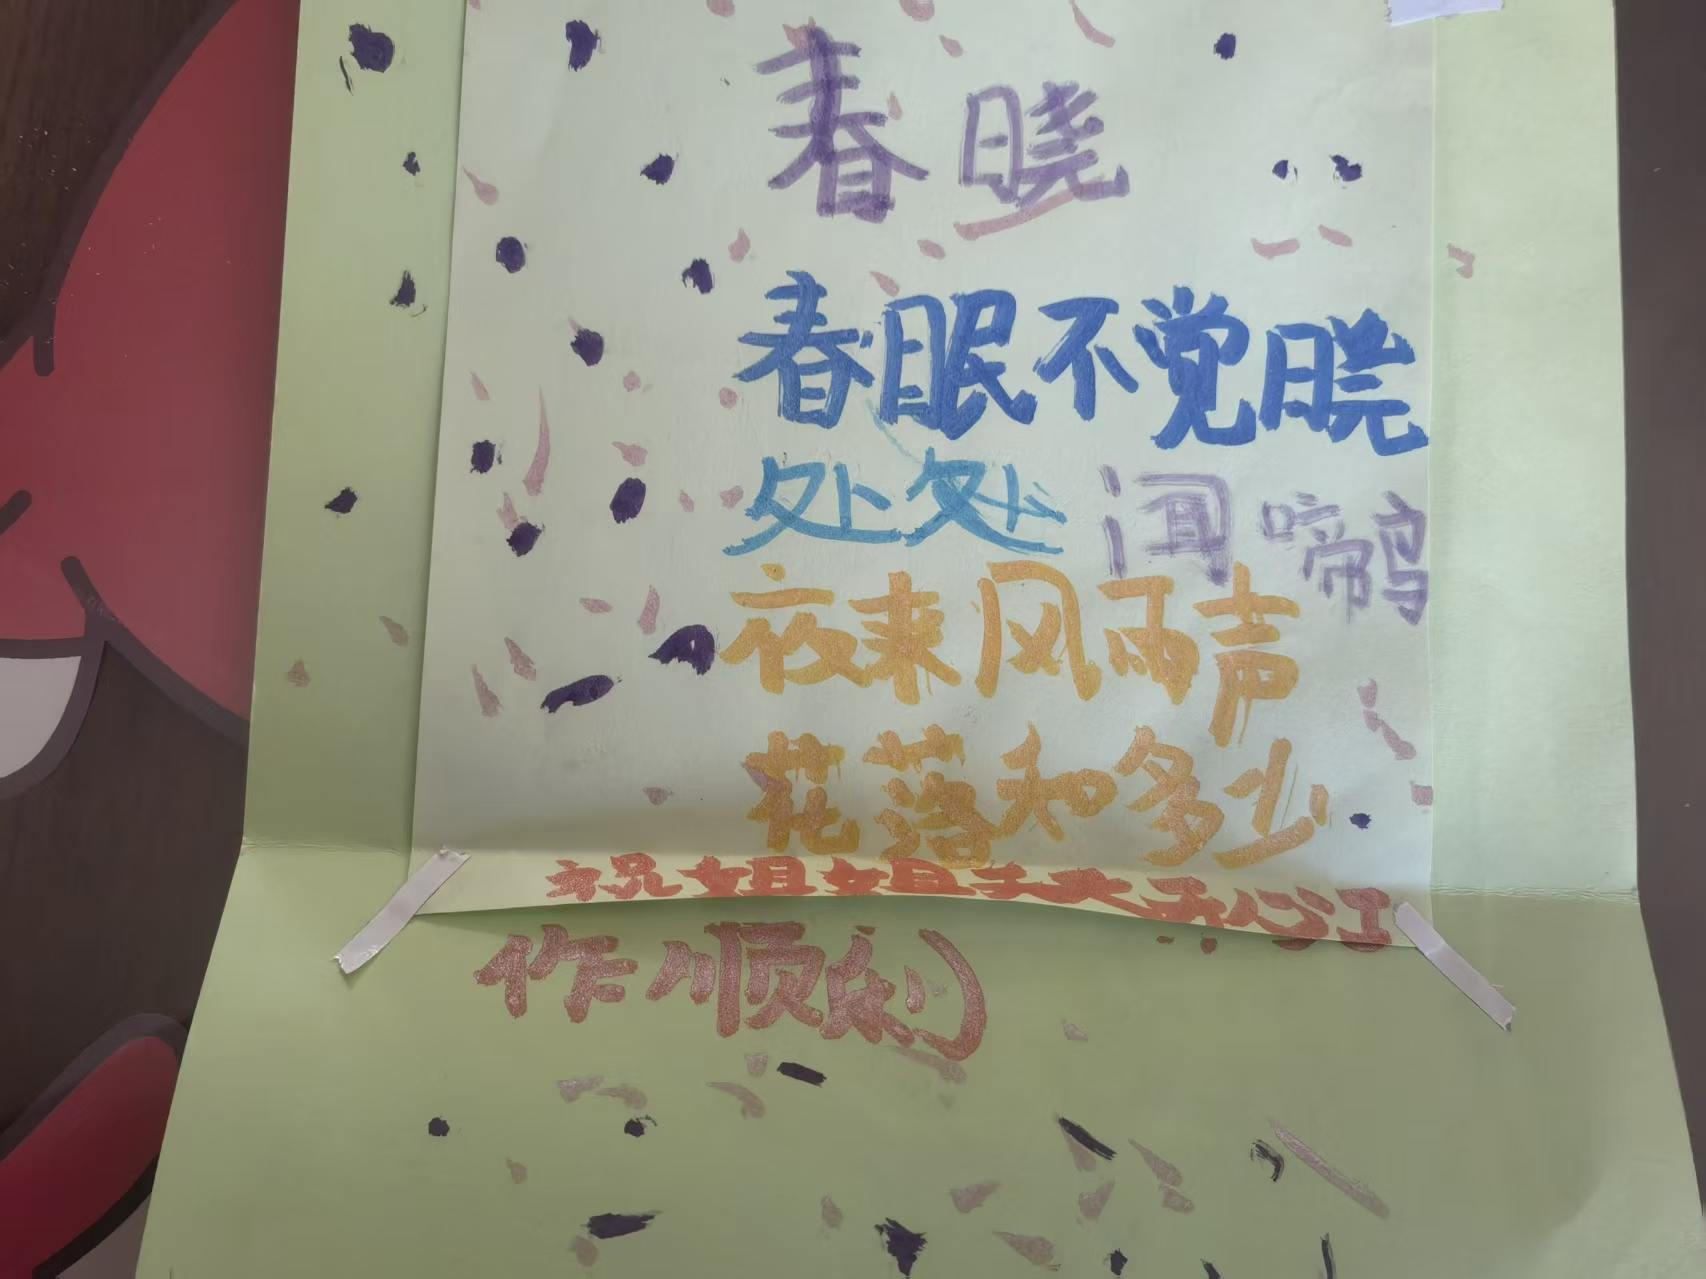 春晓
春眠不觉晓
处处闻啼鸟
夜来风雨声
花落知多少
祝姐姐天天开心江
作顺利